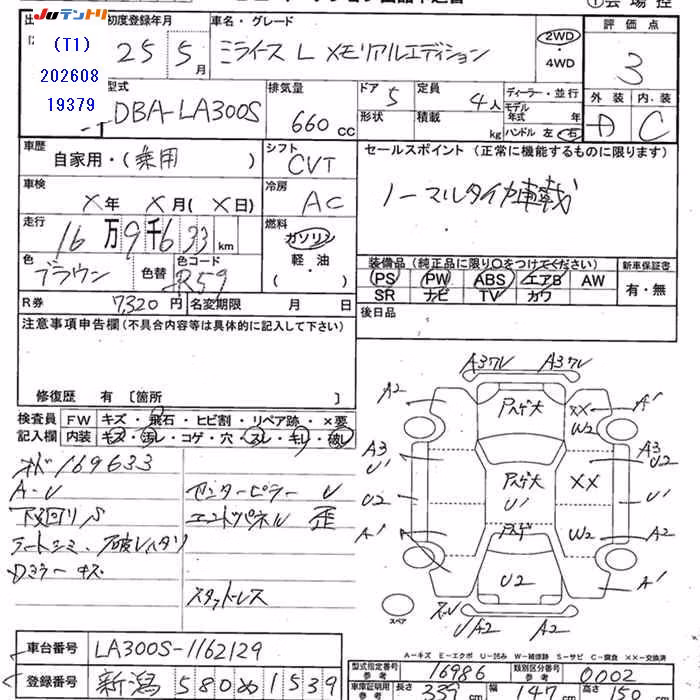 JUテントリ
(T1)
202608
19379
初度登録年月
25 5月
車名・グレード
ミライース L メモリアルエディション
2WD
・4WD
評価点
3
型式
DBA-LA300S
排気量
660 cc
ドア 5
形状
定員 4人
積載 kg
ディーラー・並行
モデル年式 年
ハンドル 左・右
外装 内装
D C
車歴
自家用・(乗用)
シフト
CVT
セールスポイント (正常に機能するものに限ります)
ノーマルタイヤ車載
車検
×年 ×月(×日)
冷房
AC
走行
16万9千633km
燃料
ガソリン
軽・油
( )
色
ブラウン
色替
色コード
R59
装備品 (純正品に限り○をつけてください)
新車保証書
PS PW ABS エアB AW
有・無
SR ナビ TV カワ
R券 7,320円
名変期限 月 日
後日品
注意事項申告欄(不具合内容等は具体的に記入して下さい)
修復歴 有 〔箇所 〕
検査員
記入欄
FW キズ・飛石・ヒビ割・リペア跡・×要
内装 キズ・汚レ・コゲ・穴・スレ・キレ・破レ
169633
A-U
センターピラー U
下回りS
エンドパネル 歪
Dミラー キズ
スタッドレス
A3 A3
A2 A1
××
W2
A3 A3
U1 U2
U2 U1
××
U1
A1 W2 A2
U2
A1
U2 A2
スペア
A-キズ E-エクボ U-凹み W-補修跡 S-サビ C-腐食 ××-交換済
車台番号 LA300S-1162129
登録番号 新潟 580 ぬ 1539
型式指定番号 参考 16986
類別区分番号 参考 0002
車庫証明用 参考
長さ 339 cm
幅 147 cm
高さ 150 cm